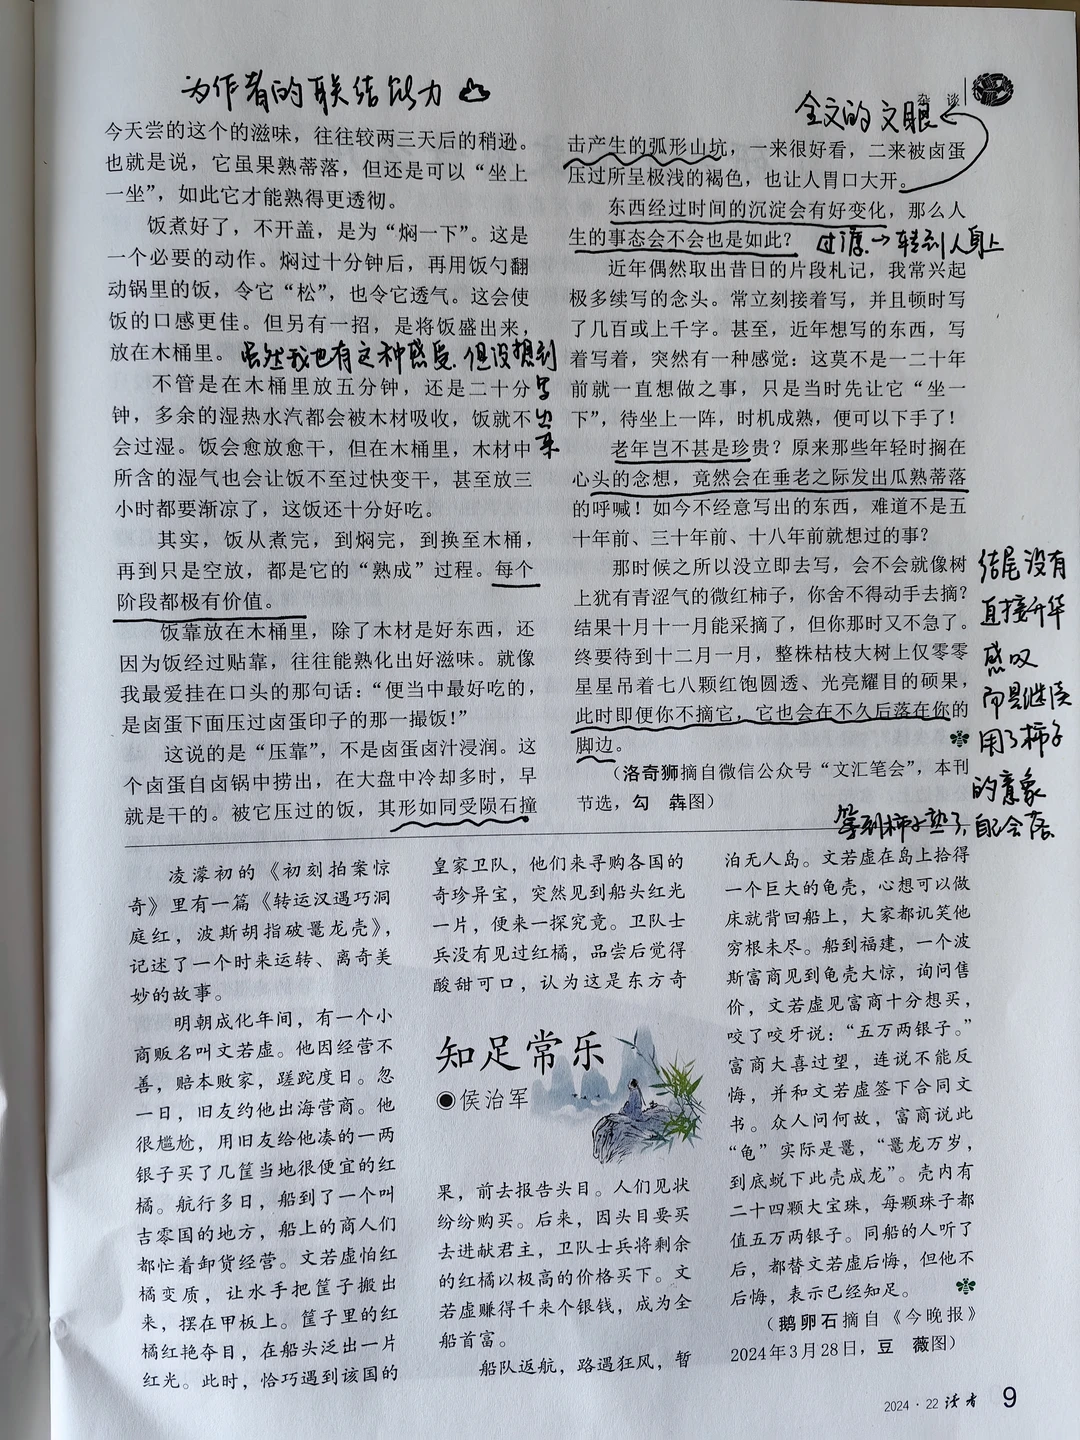 为作者的联结能力
杂谈
全文的文眼
今天尝的这个的滋味，往往较两三天后的稍逊。
也就是说，它虽果熟蒂落，但还是可以“坐上
一坐”，如此它才能熟得更透彻。
饭煮好了，不开盖，是为“焖一下”。这是
一个必要的动作。焖过十分钟后，再用饭勺翻
动锅里的饭，令它“松”，也令它透气。这会使
饭的口感更佳。但另有一招，是将饭盛出来，
放在木桶里。
虽然我也有这种感受，但没想到
写出来
不管是在木桶里放五分钟，还是二十分
钟，多余的湿热水汽都会被木材吸收，饭就不
会过湿。饭会愈放愈干，但在木桶里，木材中
所含的湿气也会让饭不至过快变干，甚至放三
小时都要渐凉了，这饭还十分好吃。
其实，饭从煮完，到焖完，到换至木桶，
再到只是空放，都是它的“熟成”过程。每个
阶段都极有价值。
饭靠放在木桶里，除了木材是好东西，还
因为饭经过贴靠，往往能熟化出好滋味。就像
我最爱挂在口头的那句话：“便当中最好吃的，
是卤蛋下面压过卤蛋印子的那一撮饭！”
这说的是“压靠”，不是卤蛋卤汁浸润。这
个卤蛋自卤锅中捞出，在大盘中冷却多时，早
就是干的。被它压过的饭，其形如同受陨石撞
击产生的弧形山坑，一来很好看，二来被卤蛋
压过所呈极浅的褐色，也让人胃口大开。
东西经过时间的沉淀会有好变化，那么人
生的事态会不会也是如此？
过渡→转到人身上
近年偶然取出昔日的片段札记，我常兴起
极多续写的念头。常立刻接着写，并且顿时写
了几百或上千字。甚至，近年想写的东西，写
着写着，突然有一种感觉：这莫不是一二十年
前就一直想做之事，只是当时先让它“坐一
下”，待坐上一阵，时机成熟，便可以下手了！
老年岂不甚是珍贵？原来那些年轻时搁在
心头的念想，竟然会在垂老之际发出瓜熟蒂落
的呼喊！如今不经意写出的东西，难道不是五
十年前、三十年前、十八年前就想过的事？
那时候之所以没立即去写，会不会就像树
上犹有青涩气的微红柿子，你舍不得动手去摘？
结果十月十一月能采摘了，但你那时又不急了。
终要待到十二月一月，整株枯枝大树上仅零零
星星吊着七八颗红饱圆透、光亮耀目的硕果，
此时即便你不摘它，它也会在不久后落在你的
脚边。
（洛奇狮摘自微信公众号“文汇笔会”，本刊
节选，勾　犇图）
结尾没有
直接升华
感叹
而是继续
用了柿子
的意象
等到柿子熟了，自会落
凌濛初的《初刻拍案惊
奇》里有一篇《转运汉遇巧洞
庭红，波斯胡指破鼍龙壳》，
记述了一个时来运转、离奇美
妙的故事。
明朝成化年间，有一个小
商贩名叫文若虚。他因经营不
善，赔本败家，蹉跎度日。忽
一日，旧友约他出海营商。他
很尴尬，用旧友给他凑的一两
银子买了几筐当地很便宜的红
橘。航行多日，船到了一个叫
吉零国的地方，船上的商人们
都忙着卸货经营。文若虚怕红
橘变质，让水手把筐子搬出
来，摆在甲板上。筐子里的红
橘红艳夺目，在船头泛出一片
红光。此时，恰巧遇到该国的
皇家卫队，他们来寻购各国的
奇珍异宝，突然见到船头红光
一片，便来一探究竟。卫队士
兵没有见过红橘，品尝后觉得
酸甜可口，认为这是东方奇
知足常乐
◉侯治军
果，前去报告头目。人们见状
纷纷购买。后来，因头目要买
去进献君主，卫队士兵将剩余
的红橘以极高的价格买下。文
若虚赚得千来个银钱，成为全
船首富。
船队返航，路遇狂风，暂
泊无人岛。文若虚在岛上拾得
一个巨大的龟壳，心想可以做
床就背回船上，大家都讥笑他
穷根未尽。船到福建，一个波
斯富商见到龟壳大惊，询问售
价，文若虚见富商十分想买，
咬了咬牙说：“五万两银子。”
富商大喜过望，连说不能反
悔，并和文若虚签下合同文
书。众人问何故，富商说此
“龟”实际是鼍，“鼍龙万岁，
到底蜕下此壳成龙”。壳内有
二十四颗大宝珠，每颗珠子都
值五万两银子。同船的人听了
后，都替文若虚后悔，但他不
后悔，表示已经知足。
（鹅卵石摘自《今晚报》
2024年3月28日，豆　薇图）
2024·22 读者 9